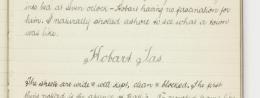 into bed at seven o'clock - Hobart having no fascination for
him. I naturally strolled ashore to see what a town
was like.
Hobart Tas.
The streets are wide & well kept, clean & blocked. The first
thing noticed is the absence of